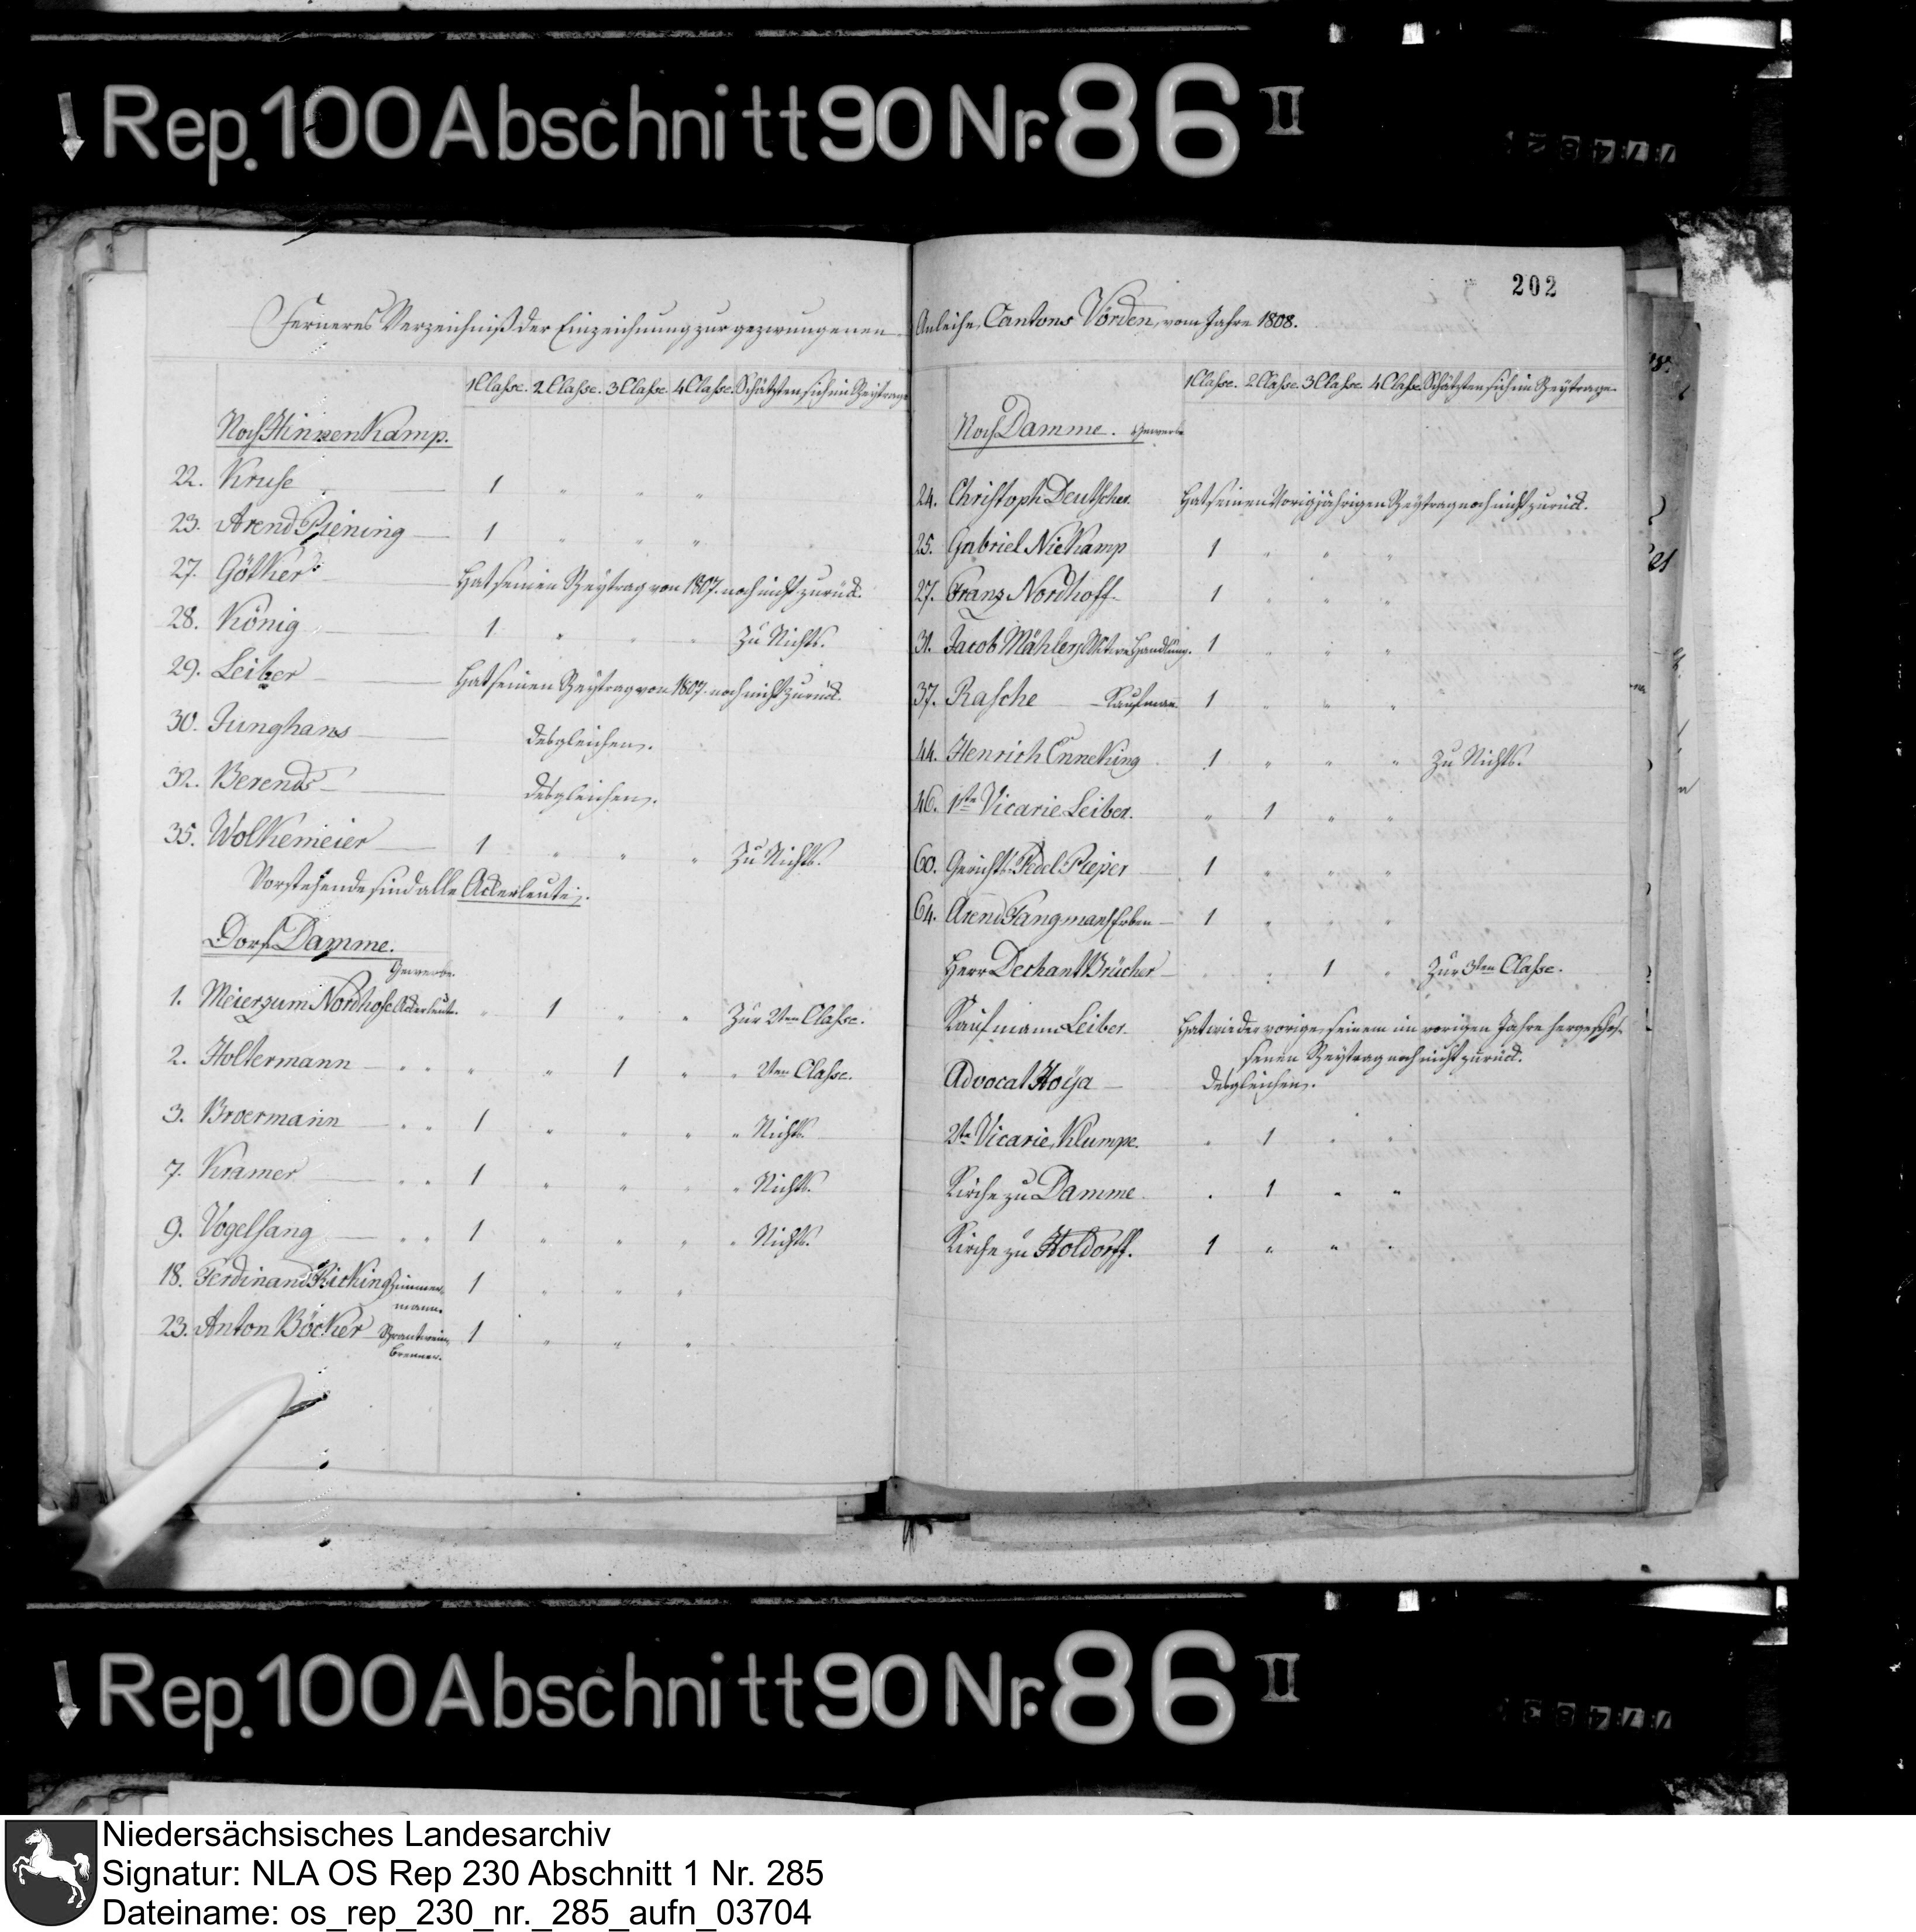 Rep. 100 Abschnitt 90 Nr. 86 II
202
Ferneres Verzeichniß der Einzeichnung zur gezwungenen
1 Classe. 2 Classe. 3 Classe. 4 Classe. Schätzten sich im Beytrage
Noch Hinnenkamp.
22. Kruse 1 " " "
23. Arend Piening 1 " " "
27. Götker Hat seinen Beytrag von 1807. noch nicht zurück.
28. König 1 " " " Zu Nichts.
29. Leiber Hat seinen Beytrag von 1807. noch nicht zurück.
30. Junghans desgleichen.
32. Berends desgleichen.
35. Wolkemeier 1 " " " Zu Nichts.
Vorstehende sind alle Ackerleute.
Dorf Damme.
Gewerbe.
1. Meier zum Nordhofe Ackerleute. " 1 " " Zur 2ten Classe.
2. Holtermann " " " " 1 " " 2ten Classe.
3. Broermann " " 1 " " " " Nichts.
7. Kramer " " 1 " " " " Nichts.
9. Vogelsang " " 1 " " " " Nichts.
18. Ferdinand Ricking Zimmer- 1 " " "
mann.
23. Anton Böcker Brantwein- 1 " " "
brenner.
Anleihe, Cantons Vörden, vom Jahre 1808.
1 Classe. 2 Classe. 3 Classe. 4 Classe. Schätzten sich im Beytrage.
Noch Damme. Gewerbe
24. Christoph Deutscher. Hat seinen Vorigjährigen Beytrag noch nicht zurück.
25. Gabriel Niekamp 1 " " "
27. Franz Nordhoff 1 " " "
31. Jacob Mähler Handlung. 1 " " "
37. Rasche Kaufmann 1 " " "
44. Henrich Enneking 1 " " " Zu Nichts.
46. 1ste Vicarie Leiber. " 1 " "
60. Gerichts Pedel Pieper 1 " " "
64. Arend Fangmans Erben 1 " " "
Herr Dechant Brücher " " 1 " Zur 3ten Classe.
Kaufmann Leiber. Hat wie der vorige, seinem im vorigen Jahre hergeschos-
senen Beytrag noch nicht zurück.
Advocat Hoya desgleichen.
2te Vicarie, Klumpe. " 1 " "
Kirche zu Damme. " 1 " "
Kirche zu Holdorff. 1 " " "
Rep. 100 Abschnitt 90 Nr. 86 II
Niedersächsisches Landesarchiv
Signatur: NLA OS Rep 230 Abschnitt 1 Nr. 285
Dateiname: os_rep_230_nr._285_aufn_03704